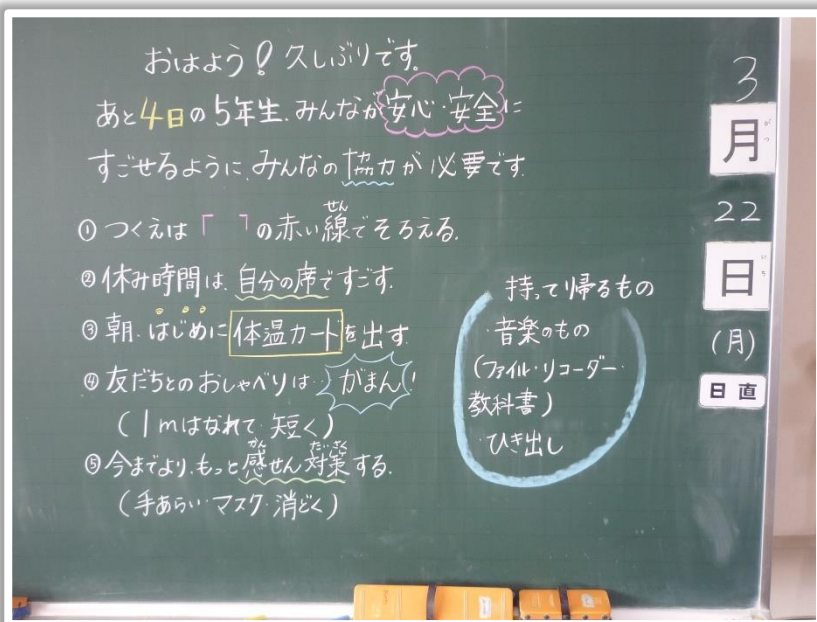 おはよう！久しぶりです。
あと4日の5年生。みんなが安心・安全に
すごせるように、みんなの協力が必要です。
①つくえは「 ﹁の赤い線でそろえる。
せん
②休み時間は、自分の席ですごす。
③朝、はじめに体温カードを出す
④友だちとのおしゃべりは、がまん!
(1mはなれて、短く)
⑤今までより、もっと感せん対策する。
かん たいさく
(手あらい・マスク・消どく)
持って帰るもの
・音楽のもの
(ファイル・リコーダー・
教科書)
・ひき出し
3
月
がつ
22
日
にち
(月)
日直